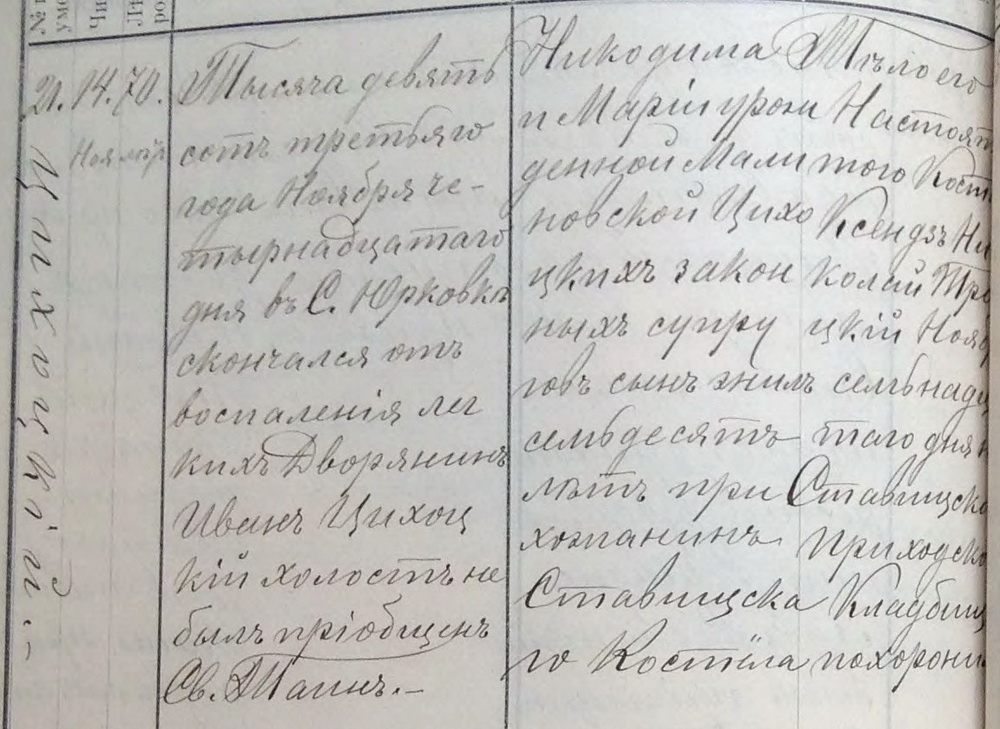 №
умо
Чи
Ли
ро
21. 14. 70.
Ноября
Цихоцкій.
Тысяча девять
сотъ третьяго
года Ноября че-
тырнадцатаго
дня въ С. Юрковкѣ
скончался отъ
воспаленія лег
кихъ Дворянинъ
Иванъ Цихоц
кій холостъ не
былъ пріобщенъ
Св. Таинъ.-
Никодима
и Маріи урож
денной Мали
новской Цихо
цкихъ закон
ныхъ супру
говъ сынъ жилъ
семьдесятъ
лѣтъ при
хожанинъ
Ставищска
го Костёла
Тѣло его
Настоят
того Кост
Ксендзъ Ни
колай Тро
цкій Нояб
семьнадц
таго дня н
Ставищско
приходско
Кладбищ
похорони